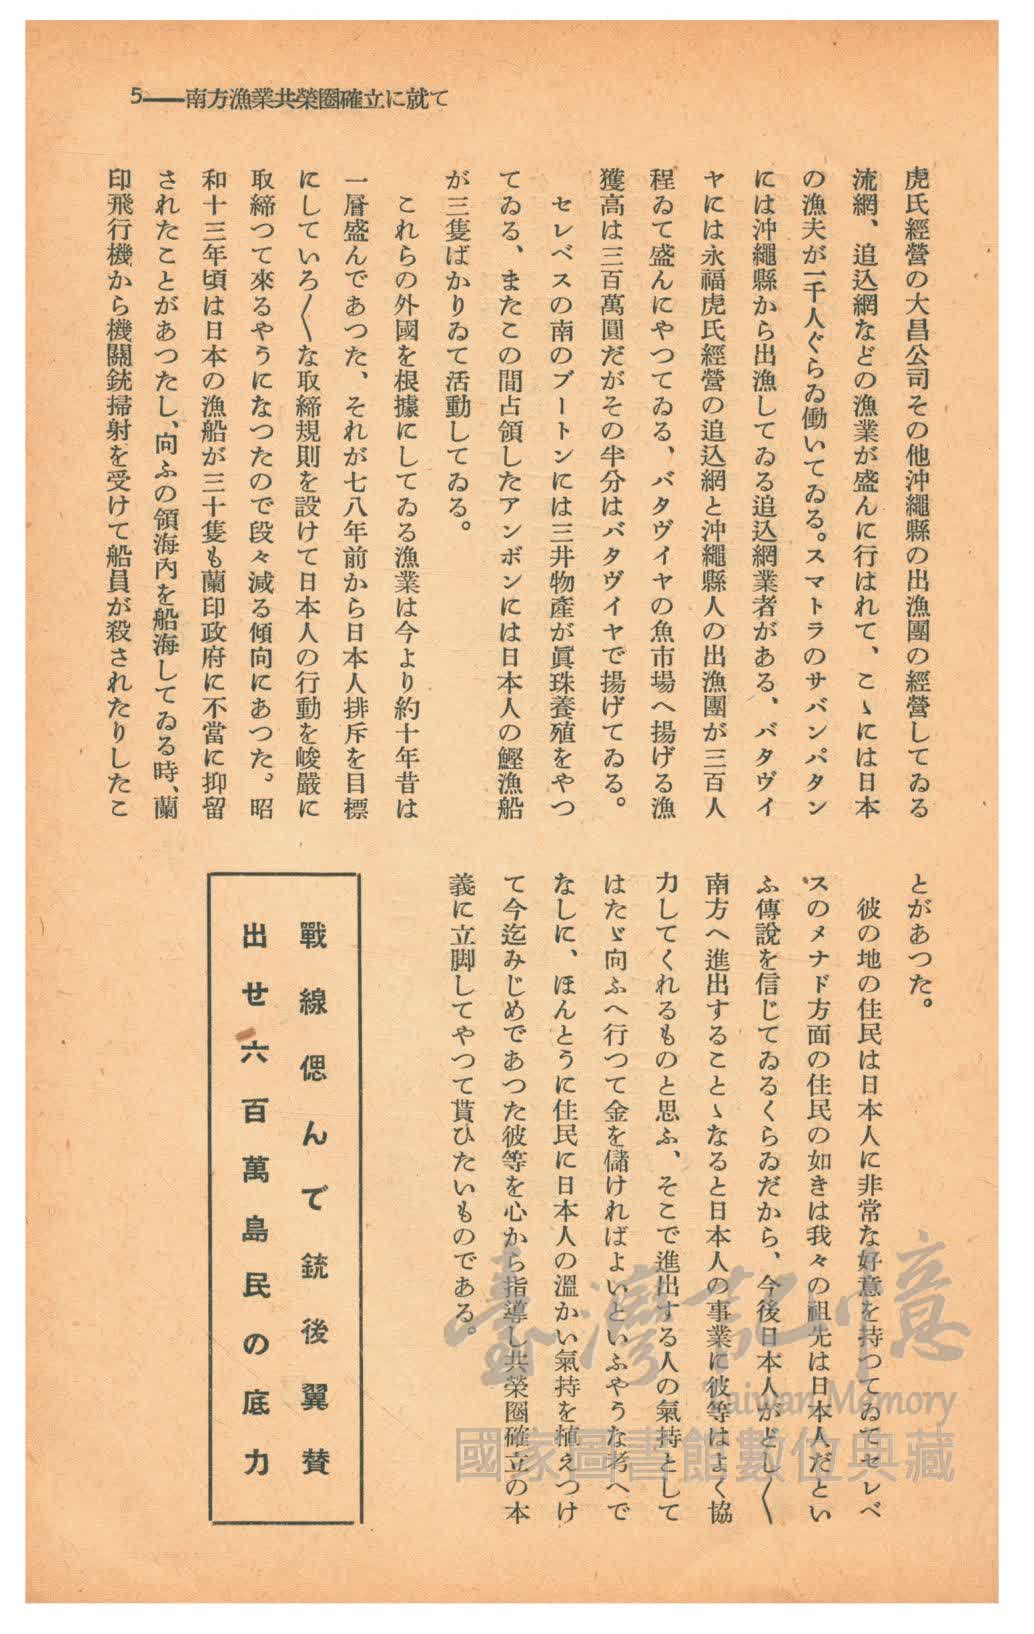 5——南方漁業共榮圈確立に就て
虎氏經營の大昌公司その他沖繩縣の出漁團の經營してゐる
流網、追込網などの漁業が盛んに行はれて、こゝには日本
の漁夫が一千人ぐらゐ働いてゐる。スマトラのサバンパタン
には沖繩縣から出漁してゐる追込網業者がある、バタヴイ
ヤには永福虎氏經營の追込網と沖繩縣人の出漁團が三百人
程ゐて盛んにやつてゐる、バタヴイヤの魚市場へ揚げる漁
獲高は三百萬圓だがその半分はバタヴイヤで揚げてゐる。
セレベスの南のブートンには三井物產が眞珠養殖をやつ
てゐる、またこの間占領したアンボンには日本人の鰹漁船
が三隻ばかりゐて活動してゐる。
これらの外國を根據にしてゐる漁業は今より約十年昔は
一層盛んであつた、それが七八年前から日本人排斥を目標
にしていろ〳〵な取締規則を設けて日本人の行動を峻嚴に
取締つて來るやうになつたので段々減る傾向にあつた。昭
和十三年頃は日本の漁船が三十隻も蘭印政府に不當に抑留
されたことがあつたし、向ふの領海內を船海してゐる時、蘭
印飛行機から機關銃掃射を受けて船員が殺されたりしたこ
とがあつた。
彼の地の住民は日本人に非常な好意を持つてゐてセレベ
スのメナド方面の住民の如きは我々の祖先は日本人だとい
ふ傳說を信じてゐるくらゐだから、今後日本人がどし〳〵
南方へ進出することゝなると日本人の事業に彼等はよく協
力してくれるものと思ふ、そこで進出する人の氣持として
はたゞ向ふへ行つて金を儲ければよいといふやうな考へで
なしに、ほんとうに住民に日本人の溫かい氣持を植えつけ
て今迄みじめであつた彼等を心から指導し共榮圈確立の本
義に立脚してやつて貰ひたいものである。
戰線偲んで銃後翼贊
出せ六百萬島民の底力
臺灣記憶
Taiwan Memory
國家圖書館數位典藏